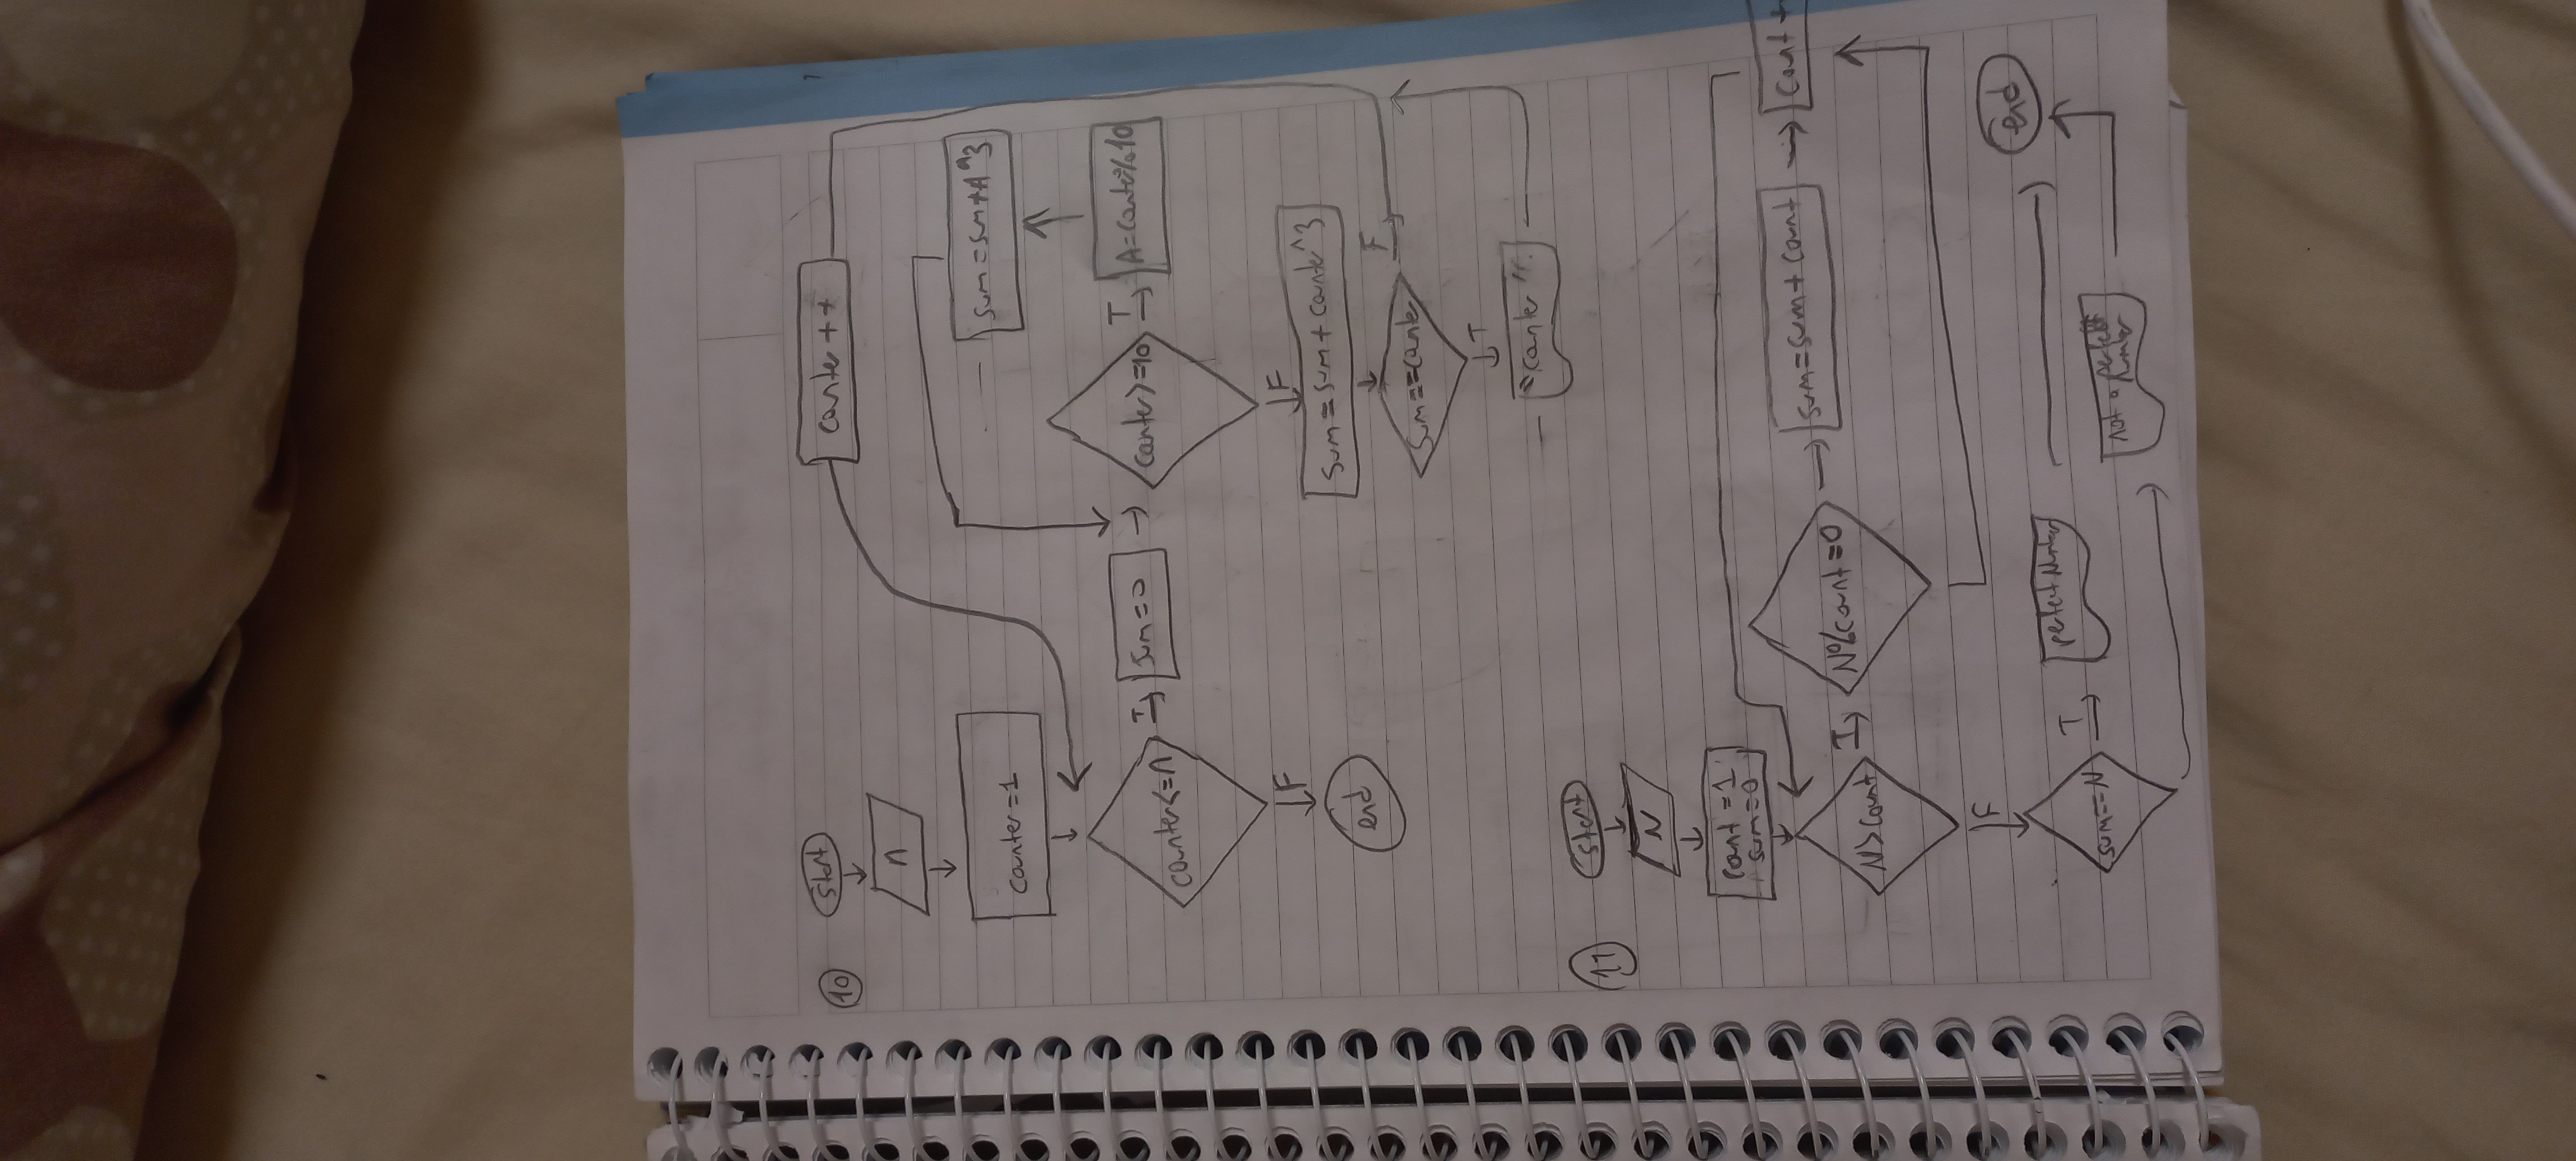 10
start
n
counter=1
counter<=n
T
sum=0
counter>=10
T
A=counter%10
sum=sum+A^3
counter++
F
end
F
sum=sum+counter^3
sum==counter
F
T
"counter".
11
start
N
count=1
sum=0
N>count
T
N%count=0
sum=sum+count
count+
F
sum==N
T
perfect Number
not a perfect
number
end